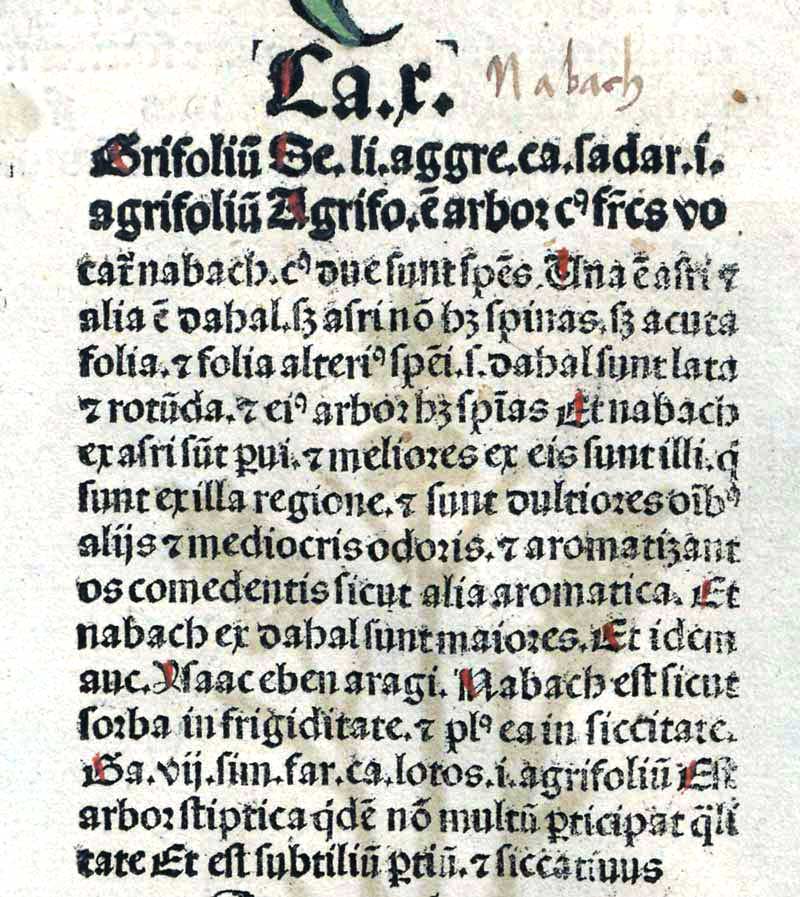 Ca.x. Nabach
Grifoliū Se.li.aggre.ca.sadar.i.
agrifoliū Agrifo.ē arbor cꝰ fr̄cs vo
cat̄ nabach.cꝰ due sunt spēs. Una ē asri ⁊
alia ē dahal.sꝫ asri nō hꝫ spinas.sꝫ acuta
folia.⁊ folia alteriꝰ spēi.s.dahal sunt lata
⁊ rotūda.⁊ eiꝰ arbor hꝫ spīas Et nabach
ex asri sūt ꝑui.⁊ meliores ex eis sunt illi.q̄
sunt ex illa regione.⁊ sunt dultiores oībꝰ
alijs ⁊ mediocris odoris.⁊ aromatizant
os comedentis sicut alia aromatica. Et
nabach ex dahal sunt maiores. Et idem
auc. Ysaac eben aragi. Nabach est sicut
sorba in frigiditate.⁊ plꝰ ea in siccitate.
Ga.vij.sim.far.ca.lotos.i.agrifoliū Est
arbor stiptica q̇dē nō multū ꝑticipat q̄li
tate Et est subtiliū ꝑtiū.⁊ siccatiuus